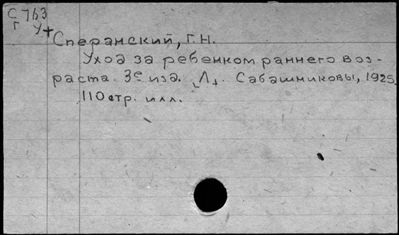 С 763
Г У+
Сперанский, Г.Н.
Уход за ребенком раннего воз-
раста. 3е изд. Л., Сабашниковы, 1925.
110 стр. илл.